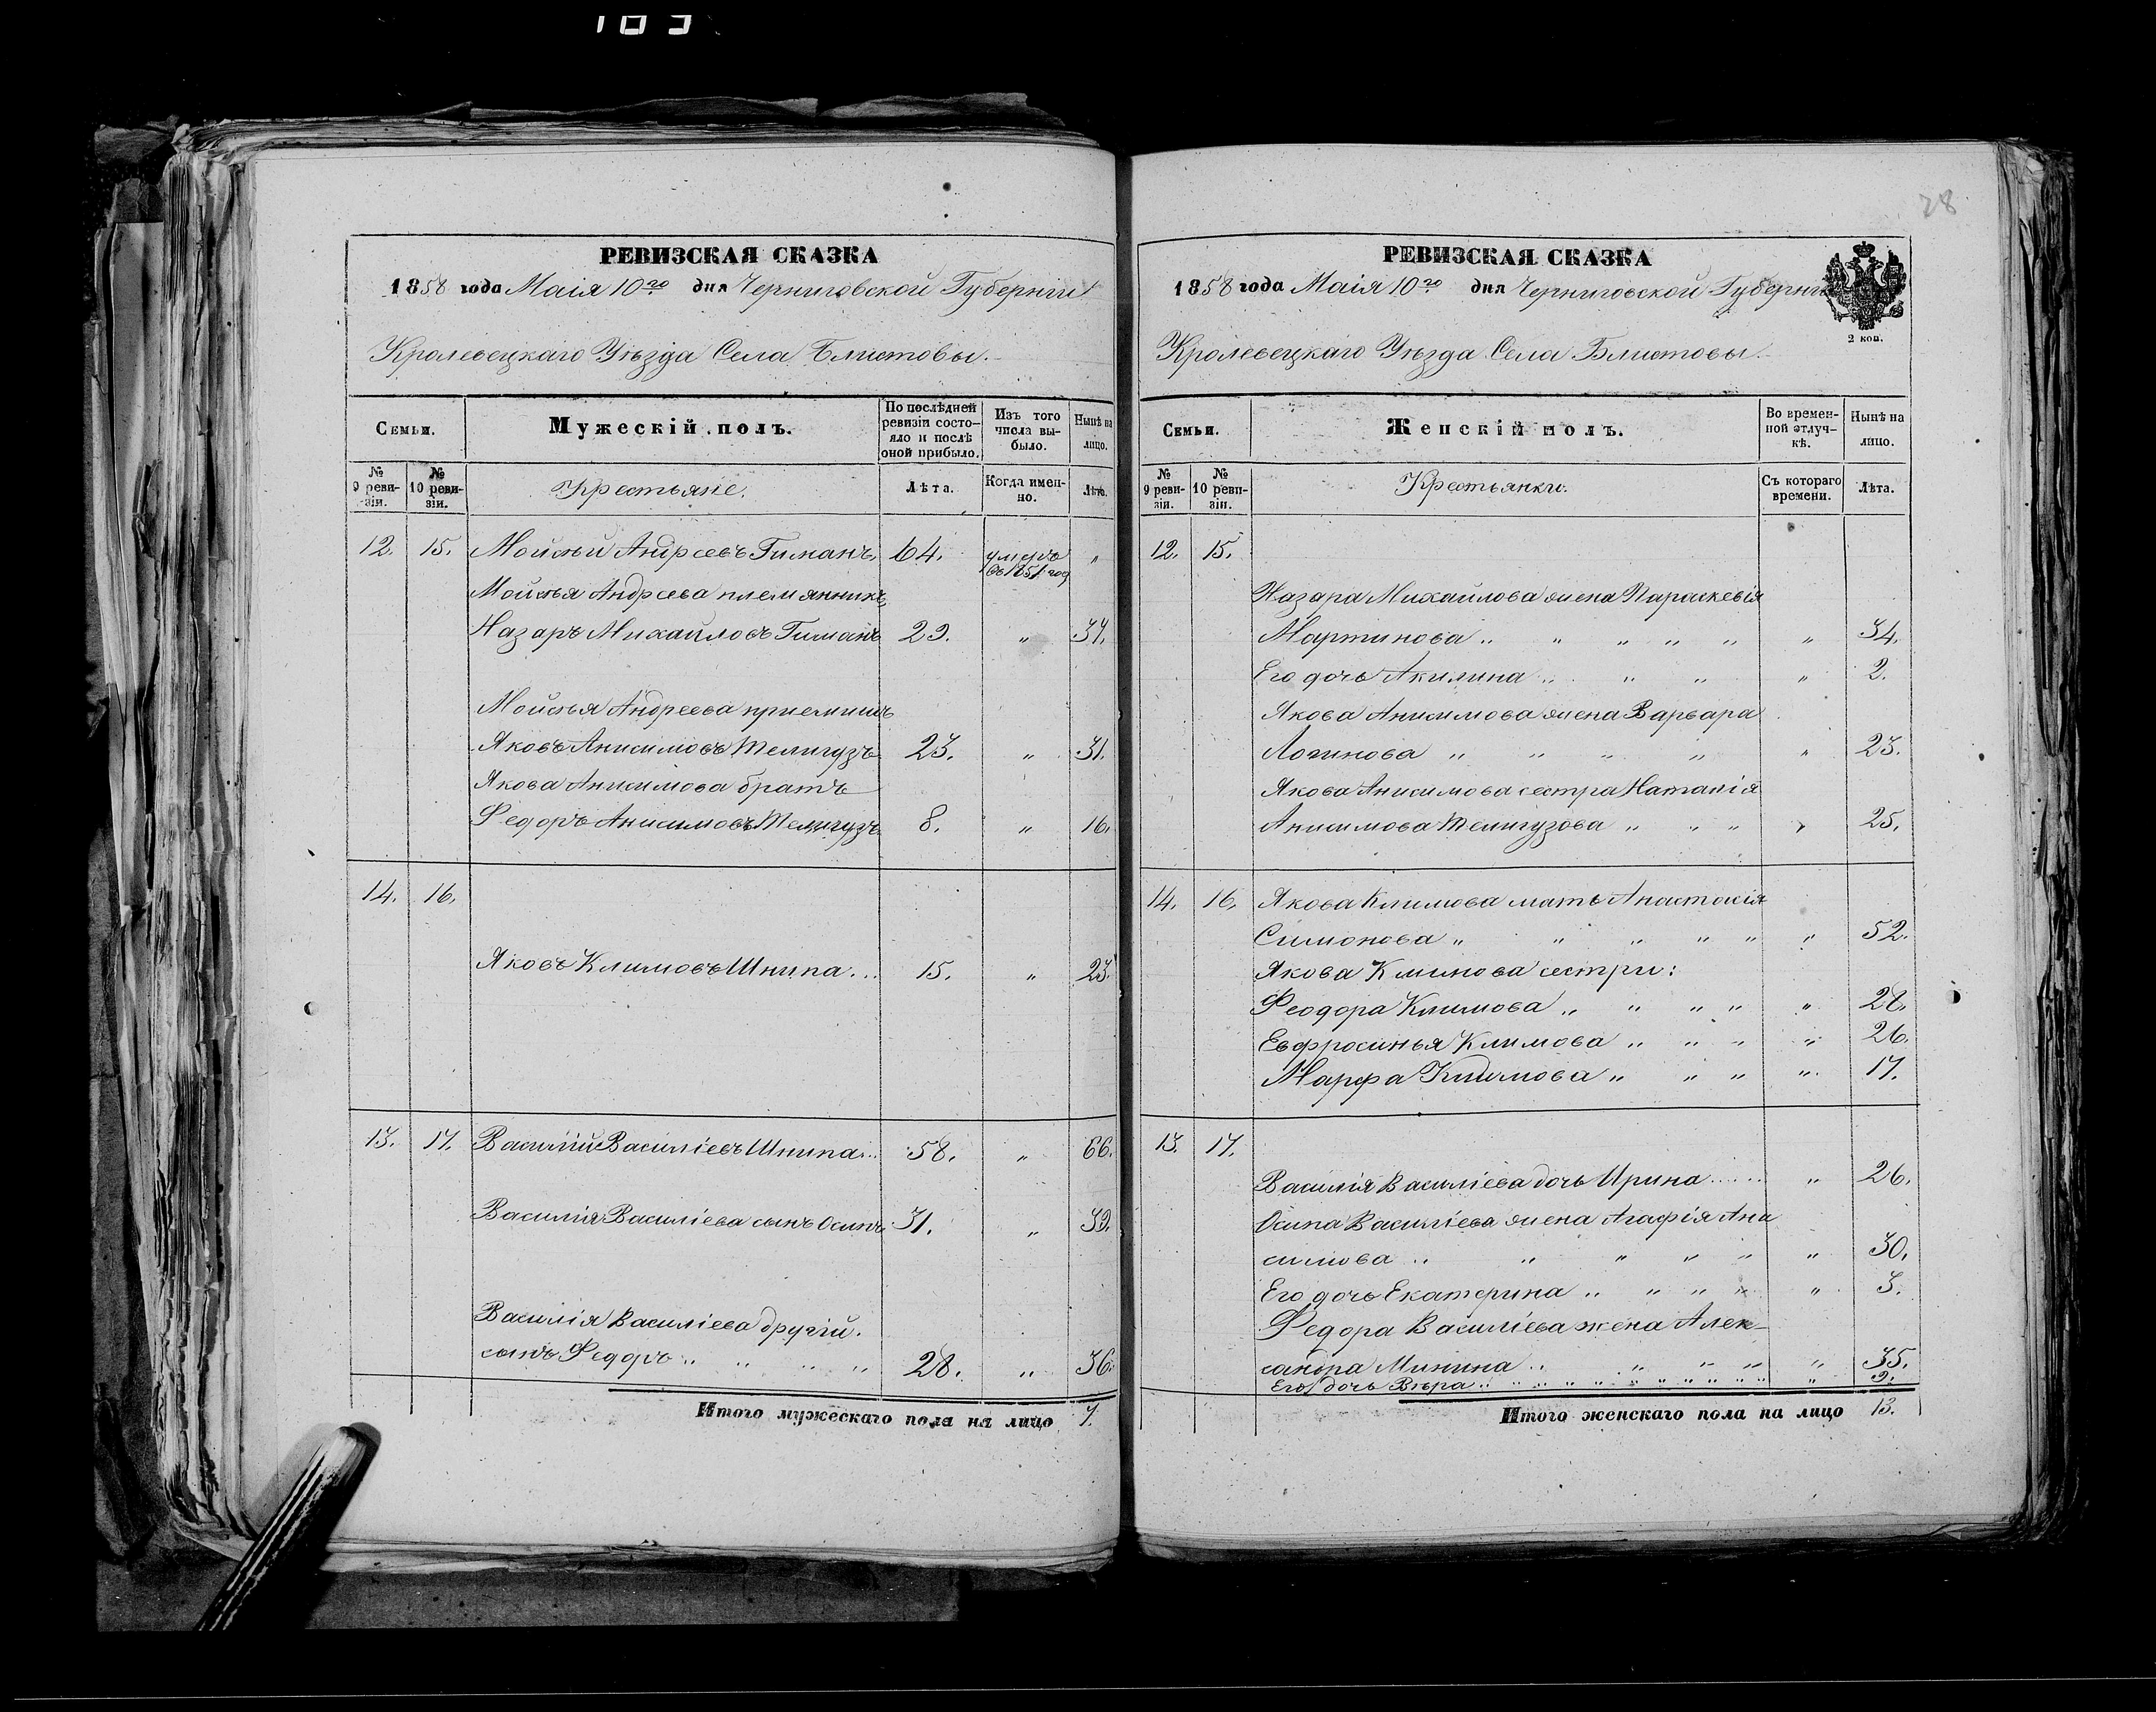 183
28
РЕВИЗСКАЯ СКАЗКА
1858 года Маія 10го дня Черниговской Губерніи
Кролевецкаго Уѣзда Села Блистовы.
Семьи.
Мужескій полъ.
По послѣдней ревизіи состо-
яло и послѣ
оной прибыло.
Изъ того
числа вы-
было.
Нынѣ на
лицо.
№
9 реви-
зіи.
№
10 реви-
зіи.
Крестьяне.
Лѣта.
Когда имен-
но.
Лѣта.
12. 15. Мойсѣй Андреевъ Гиманъ, 64. умеръ въ 1851 год "
Мойсѣя Андреева племянникъ
Назаръ Михайловъ Гиманъ 29. " 37.
Мойсѣя Андреева приемишъ
Яковъ Анисимовъ Телигузъ 23. " 31.
Якова Анисимова братъ
Федоръ Анисимовъ Телигузъ 8. " 16.
14. 16.
Яковъ Климовъ Шнипа... 15. " 23.
13. 17. Василій Василіевъ Шнипа.. 58. " 66.
Василія Василіева сынъ Осипъ 31. " 39.
Василія Василіева другій
сынъ Федоръ " " " " 28. " 36.
Итого мужескаго пола на лицо 7.
РЕВИЗСКАЯ СКАЗКА
1858 года Маія 10го дня Черниговской Губерніи
2 коп.
Кролевецкаго Уѣзда Села Блистовы.
Семьи.
Женскій полъ.
Во времен-
ной отлуч-
кѣ.
Нынѣ на
лицо.
№
9 реви-
зіи.
№
10 реви-
зіи.
Крестьянки.
Съ котораго
времени.
Лѣта.
12. 15.
Назара Михайлова жена Параскевія
Мартинова " " " " " " 34.
Его дочь Акилина " " " " 2.
Якова Анисимова жена Варвара
Логинова " " " " " 23.
Якова Анисимова сестра Наталія
Анисимова Телигузова " " " " 25.
14. 16. Якова Климова мать Анастасія
Симонова " " " " " " 52.
Якова Климова сестри:
Феодора Климова " " " " " 28.
Евфросинья Климова " " " " 26.
Марфа Климова " " " " 17.
13. 17.
Василія Василіева дочь Ирина ..... " 26.
Осипа Василіева жена Агафія Ани
симова " " " " " " 30.
Его дочь Екатерина " " " " " 3.
Федора Василіева жена Алек-
сандра Минина " " " " " 35.
Его дочь Вѣра " " " " " " " " " " " 9.
Итого женскаго пола на лицо 13.